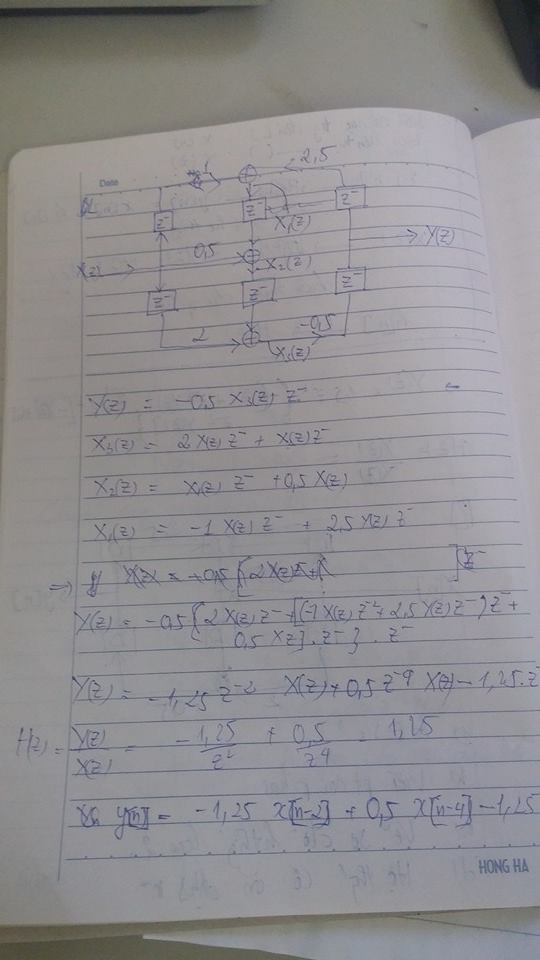 Date
2,5
z⁻ z⁻ z⁻
X₁(z)
X(z) 0,5 X₂(z) Y(z)
z⁻ z⁻ z⁻
2 -0,5
X₃(z)
Y(z) = -0,5 X₃(z) z⁻
X₃(z) = 2X(z) z⁻ + X(z) z⁻
X₂(z) = X₁(z) z⁻ + 0,5 X(z)
X₁(z) = -1 X(z) z⁻ + 2,5 Y(z) z⁻
Y(z) = -0,5 { 2X(z) z⁻ + [(-1 X(z) z⁻ + 2,5 X(z) z⁻) z⁻ +
0,5 X(z)] . z⁻ } . z⁻
Y(z) = -1,25 z⁻² X(z) + 0,5 z⁻⁴ X(z) - 1,25 . z⁻
H(z) = Y(z)/X(z) = -1,25/z² + 0,5/z⁴ - 1,25
y[n] = -1,25 x[n-2] + 0,5 x[n-4] - 1,25
HONG HA